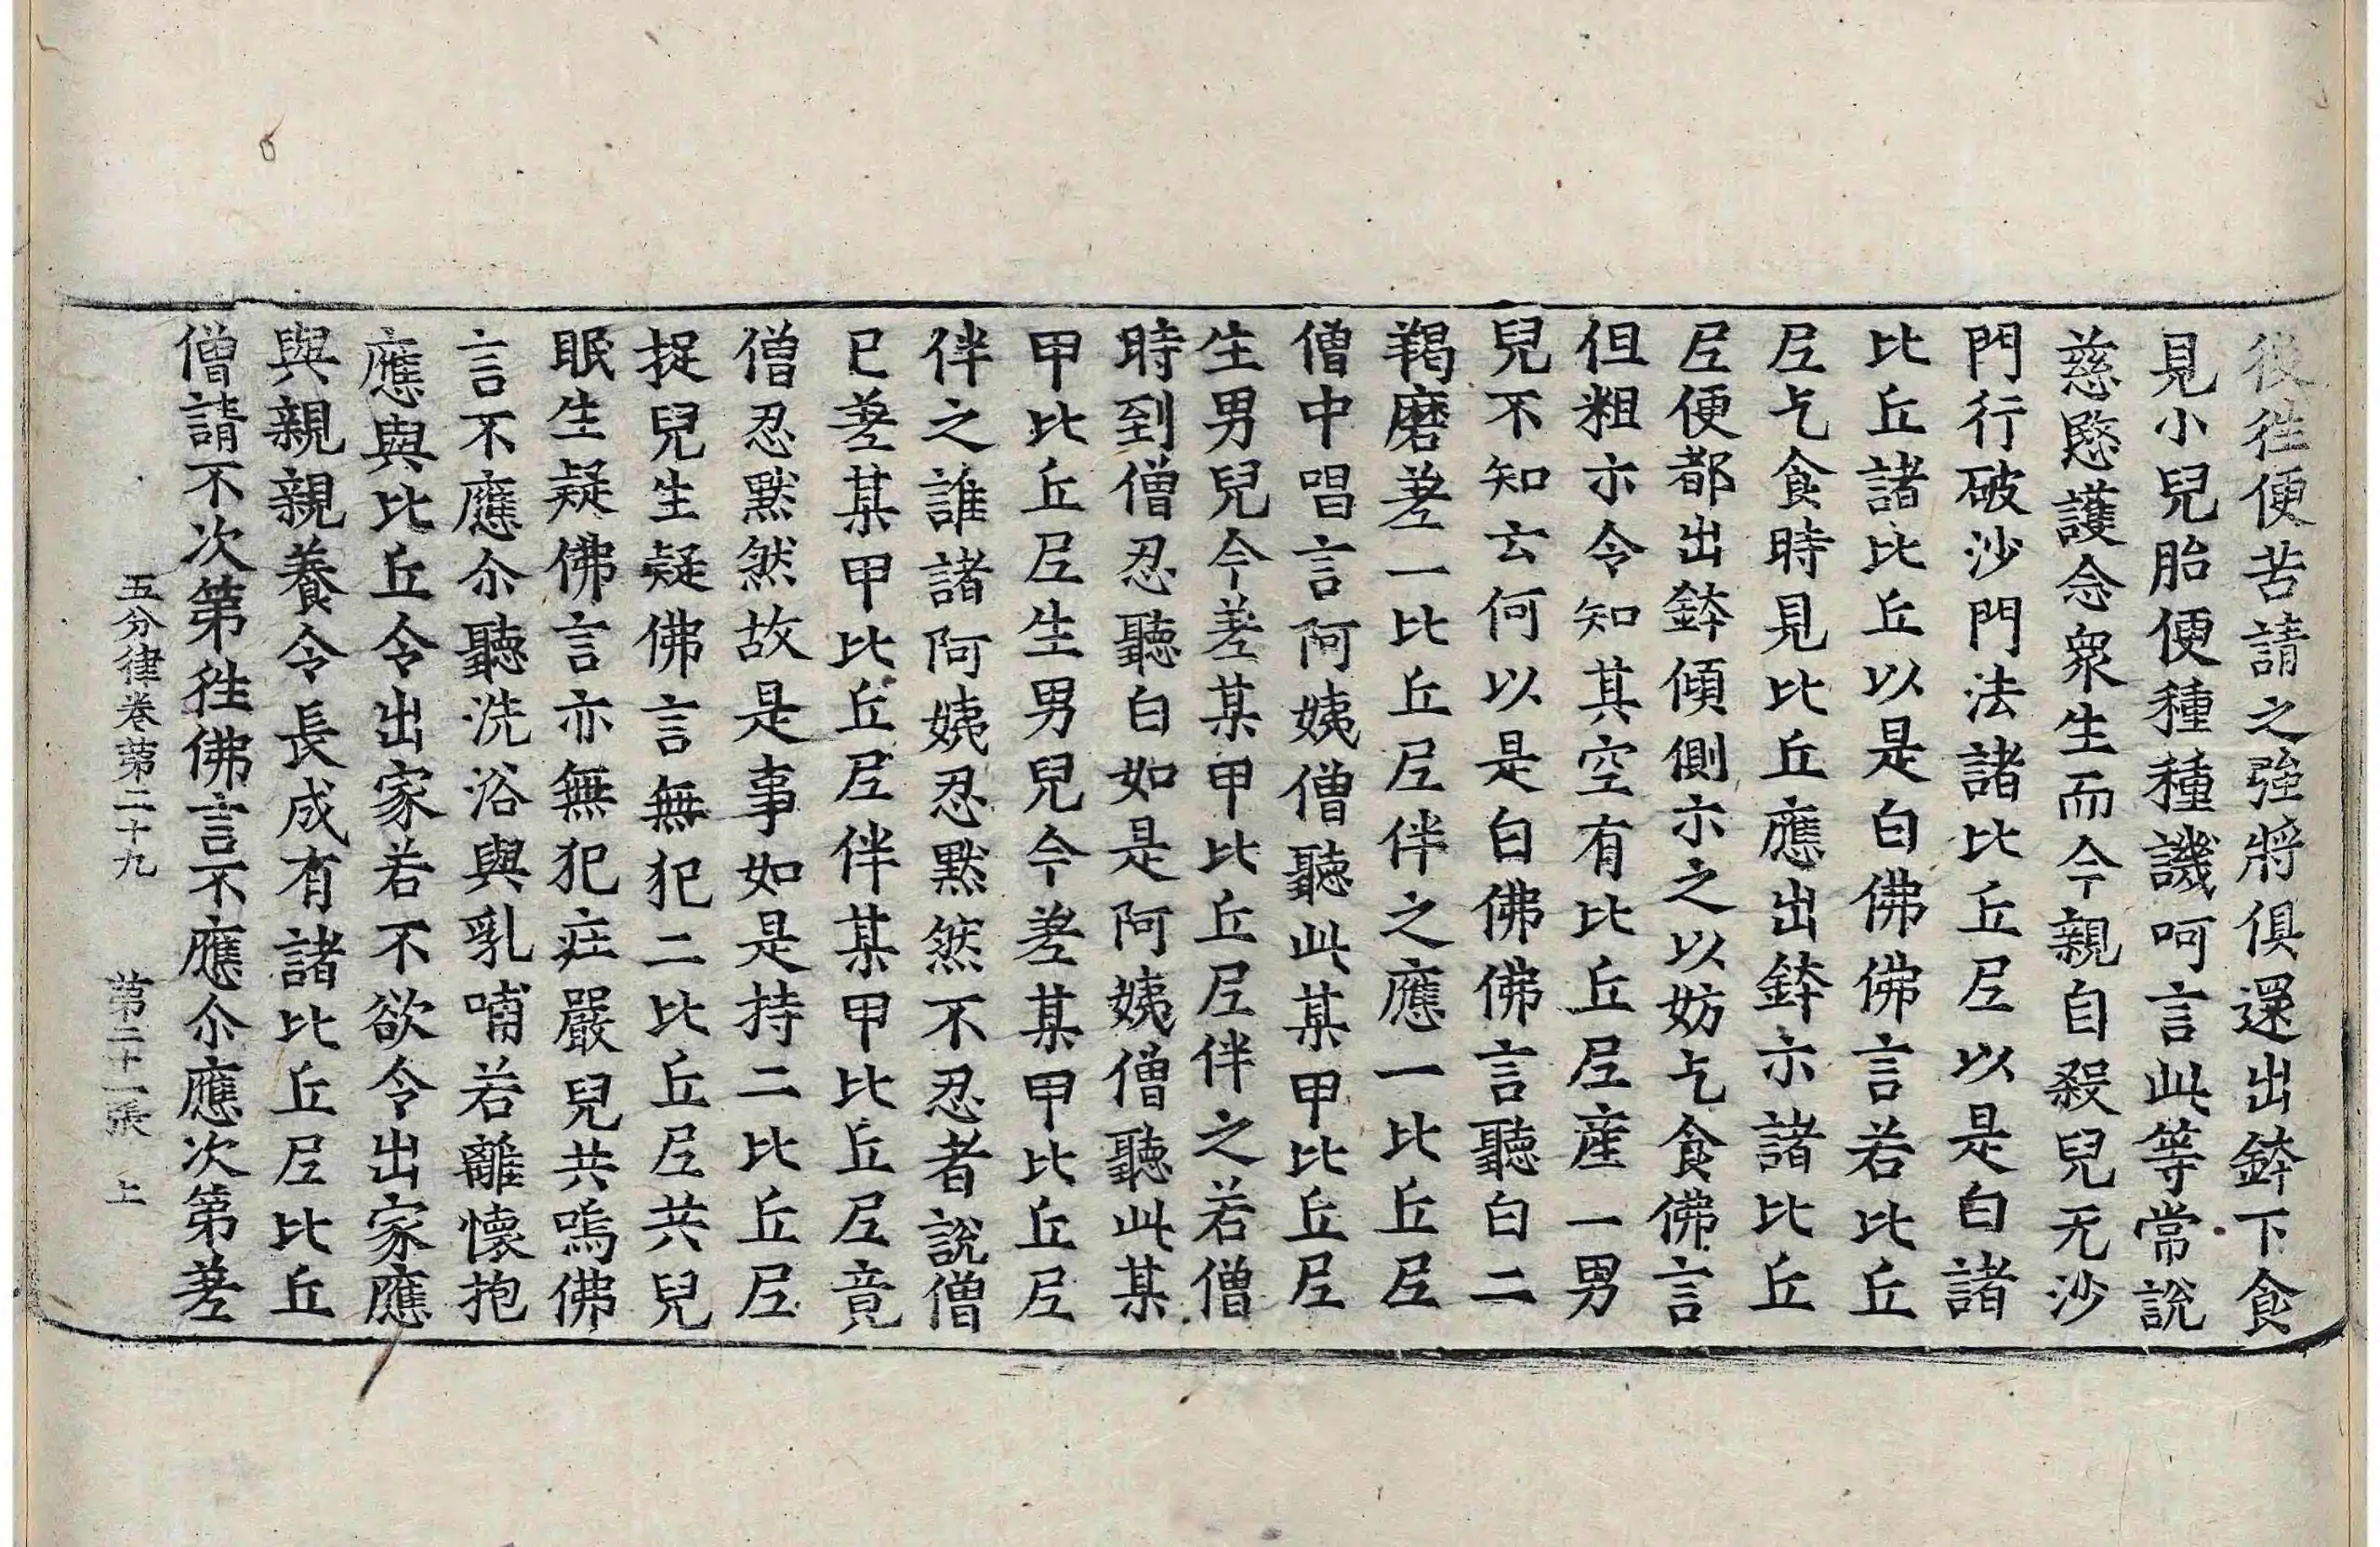 後徃便苦請之強將俱還出鉢下食
見小兒胎便種種譏呵言此等常說
慈愍護念衆生而今親自殺兒无沙
門行破沙門法諸比丘尼以是白諸
比丘諸比丘以是白佛佛言若比丘
尼乞食時見比丘應出鉢示諸比丘
尼便都出鉢傾側示之以妨乞食佛言
但粗示令知其空有比丘尼産一男
兒不知云何以是白佛佛言聽白二
羯磨差一比丘尼伴之應一比丘尼
僧中唱言阿姨僧聽此某甲比丘尼
生男兒今差某甲比丘尼伴之若僧
時到僧忍聽白如是阿姨僧聽此某
甲比丘尼生男兒今差某甲比丘尼
伴之誰諸阿姨忍默然不忍者說僧
已差某甲比丘尼伴某甲比丘尼竟
僧忍默然故是事如是持二比丘尼
捉兒生疑佛言無犯二比丘尼共兒
眠生疑佛言亦無犯莊嚴兒共嗚佛
言不應尒聽洗浴與乳哺若離懷抱
應與比丘令出家若不欲令出家應
與親親養令長成有諸比丘尼比丘
僧請不次第徃佛言不應尒應次第差
五分律卷第二十九 第二十一張 上